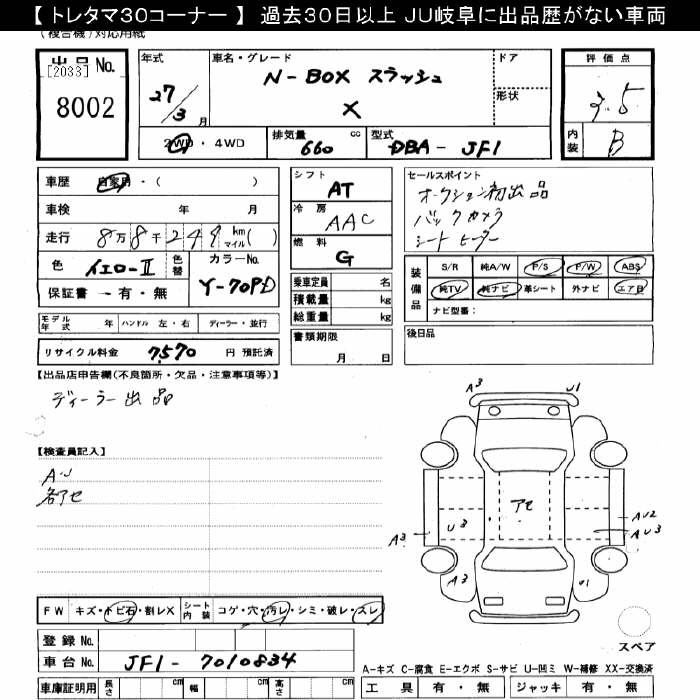 【 トレタマ30コーナー 】 過去30日以上 JU岐阜に出品歴がない車両
(複合機)対応用紙
出品 No. [2033]
8002
年式 27/3 月
車名・グレード N-BOX スラッシュ
X
ドア
形状
評価点 3.5
内装 B
2WD・4WD
排気量 660 cc
型式 DBA - JF1
車歴 自家用・( )
車検 年 月
走行 8万8千249 km マイル( )
色 イエロー-II 色替 カラーNo. Y-70P-D
保証書 ー 有・無
シフト AT
冷房 AAC
燃料 G
乗車定員 名
積載量 kg
総重量 kg
セールスポイント
オークション初出品
バックカメラ
シートヒーター
装備品
S/R 純A/W P/S P/W ABS
純TV 純ナビ 革シート 外ナビ エアB
ナビ型番:
モデル年式 年 ハンドル 左・右 ディーラー・並行
リサイクル料金 7,570 円 預託済
書類期限 月 日
後日品
【出品店申告欄(不良箇所・欠品・注意事項等)】
ディーラー出品
【検査員記入】
AU
各アセ
A3 U1
アセ
A3 U3
AU2
AU3
A3 U1
スペア
FW キズ・トビ石・割レX シート内装 コゲ・穴・汚レ・シミ・破レ・スレ
登録 No.
車台 No. JF1-7010834
車庫証明用 長さ cm 幅 cm 高さ cm
A-キズ C-腐食 E-エクボ S-サビ U-凹ミ W-補修 XX-交換済
工具 有・無 ジャッキ 有・無